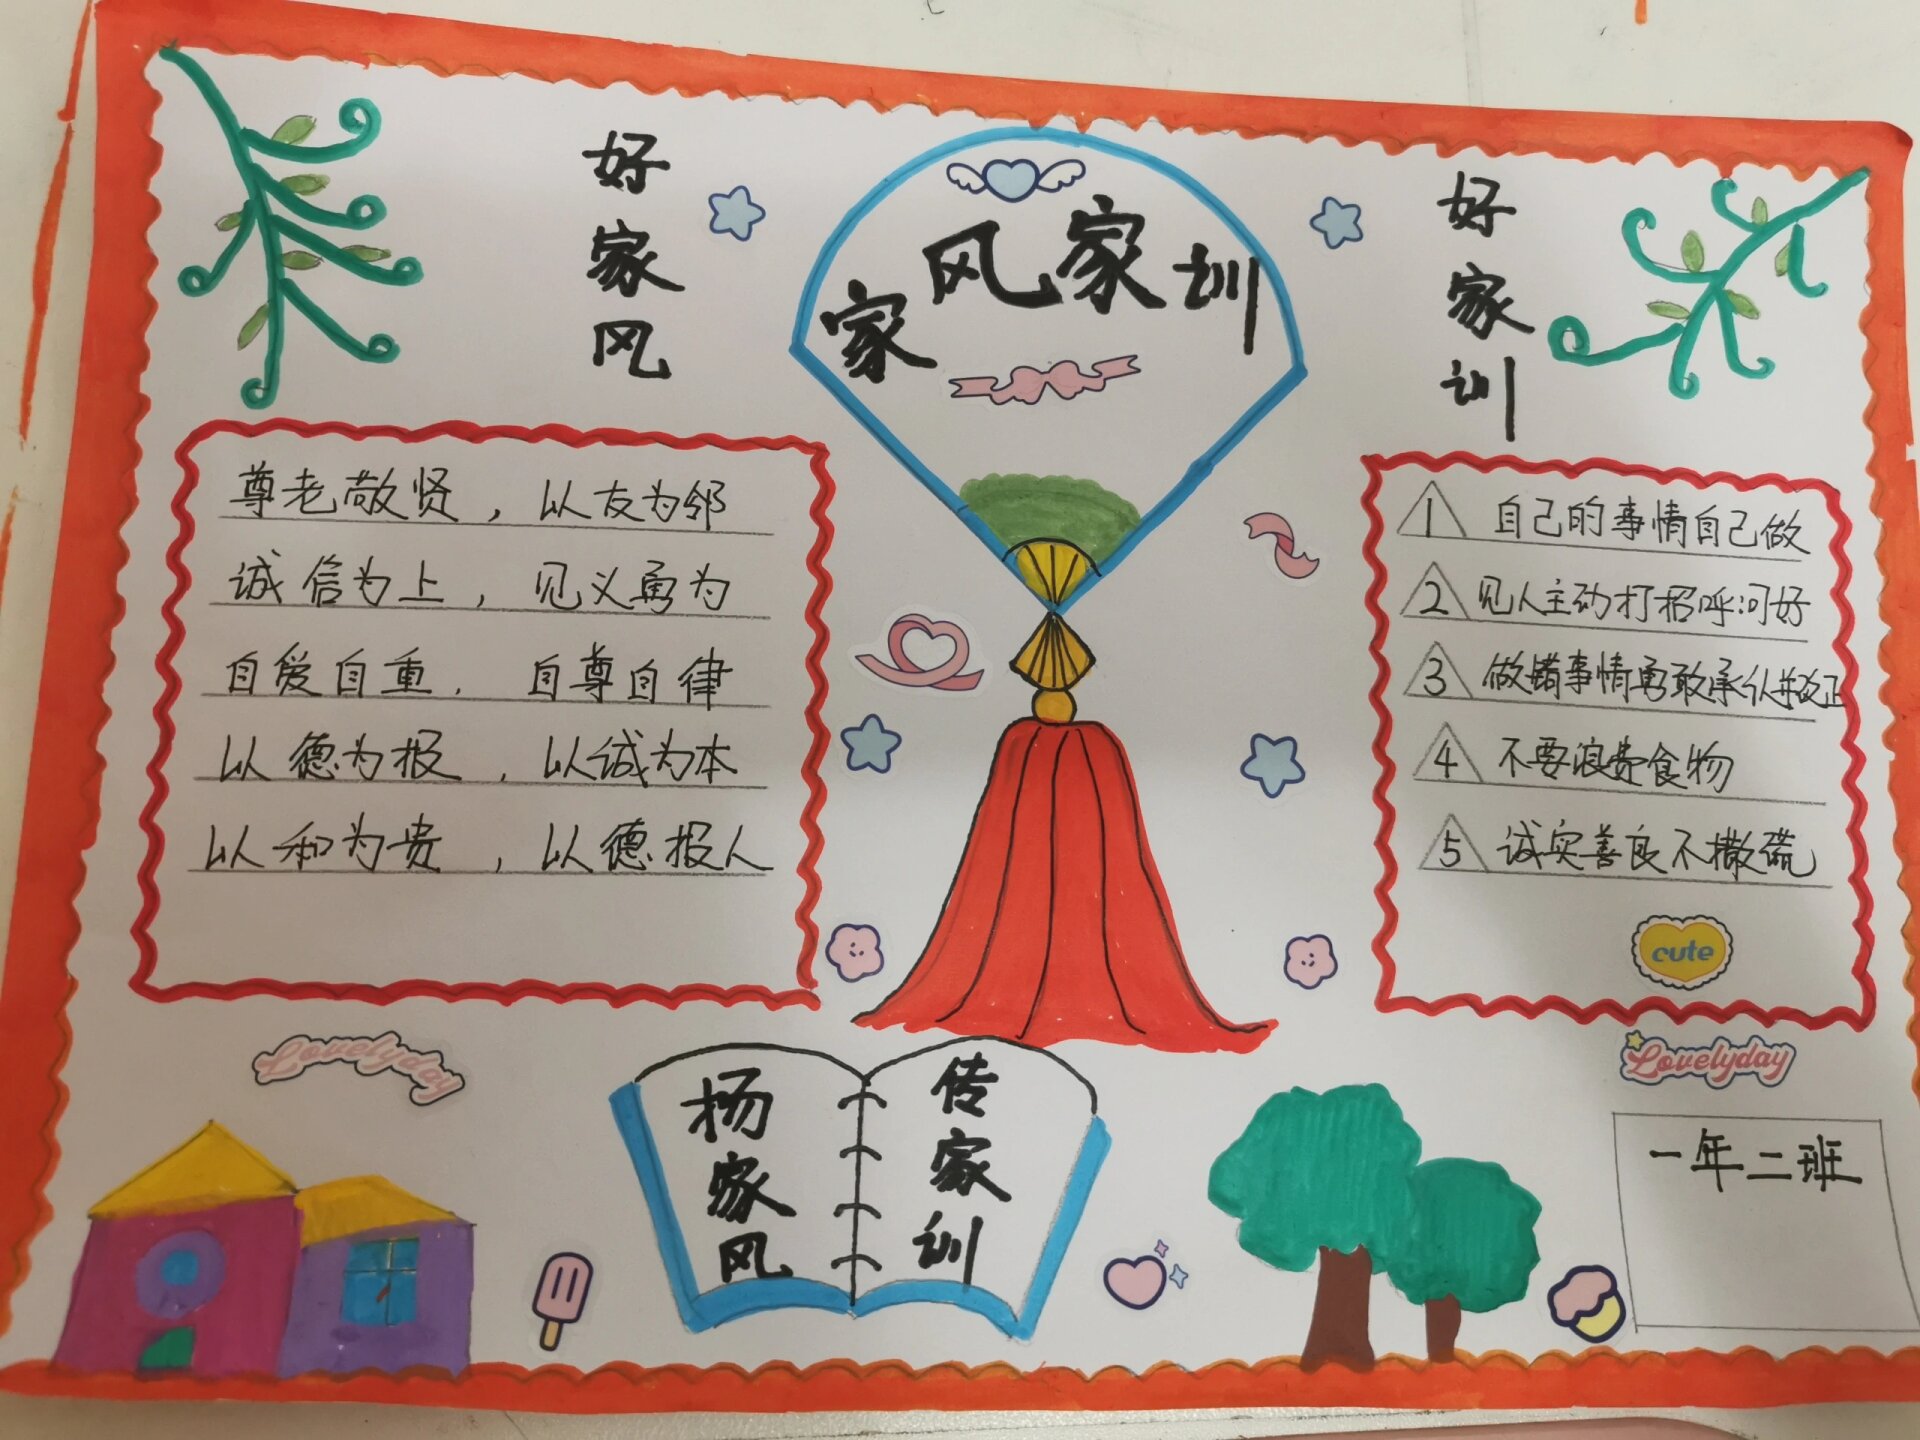 好家风
家风家训
好家训
尊老敬贤，以友为邻
诚信为上，见义勇为
自爱自重，自尊自律
以德为报，以诚为本
以和为贵，以德报人
1 自己的事情自己做
2 见人主动打招呼问好
3 做错事情勇敢承认并改正
4 不要浪费食物
5 诚实善良不撒谎
cute
Lovelyday
Lovelyday
扬家风
传家训
一年二班